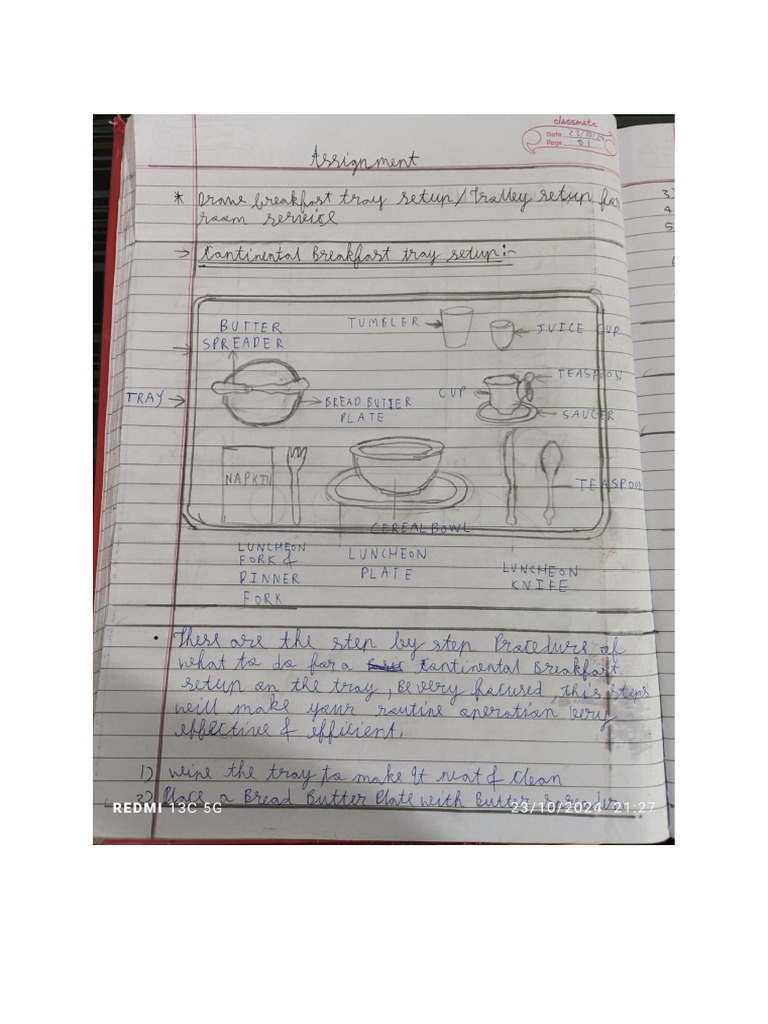 classmate
Date 23/10/24
Page 01
Assignment
* Draw breakfast tray setup/Trolley setup for
room service
→ Continental Breakfast tray setup:-
BUTTER
SPREADER
TUMBLER
JUICE CUP
TRAY
BREAD BUTTER
PLATE
CUP
TEASPOON
SAUCER
NAPKIN
TEASPOON
CEREAL BOWL
LUNCHEON
FORK &
DINNER
FORK
LUNCHEON
PLATE
LUNCHEON
KNIFE
• These are the step by step Procedure of
what to do for a Continental Breakfast
setup on the tray, Be very focused, this steps
will make your routine operation very
effective & efficient.
1) Wipe the tray to make it neat & clean
2) Place a Bread Butter Plate with Butter spreader
3)
4
5
REDMI 13C 5G
23/10/2024 21:27